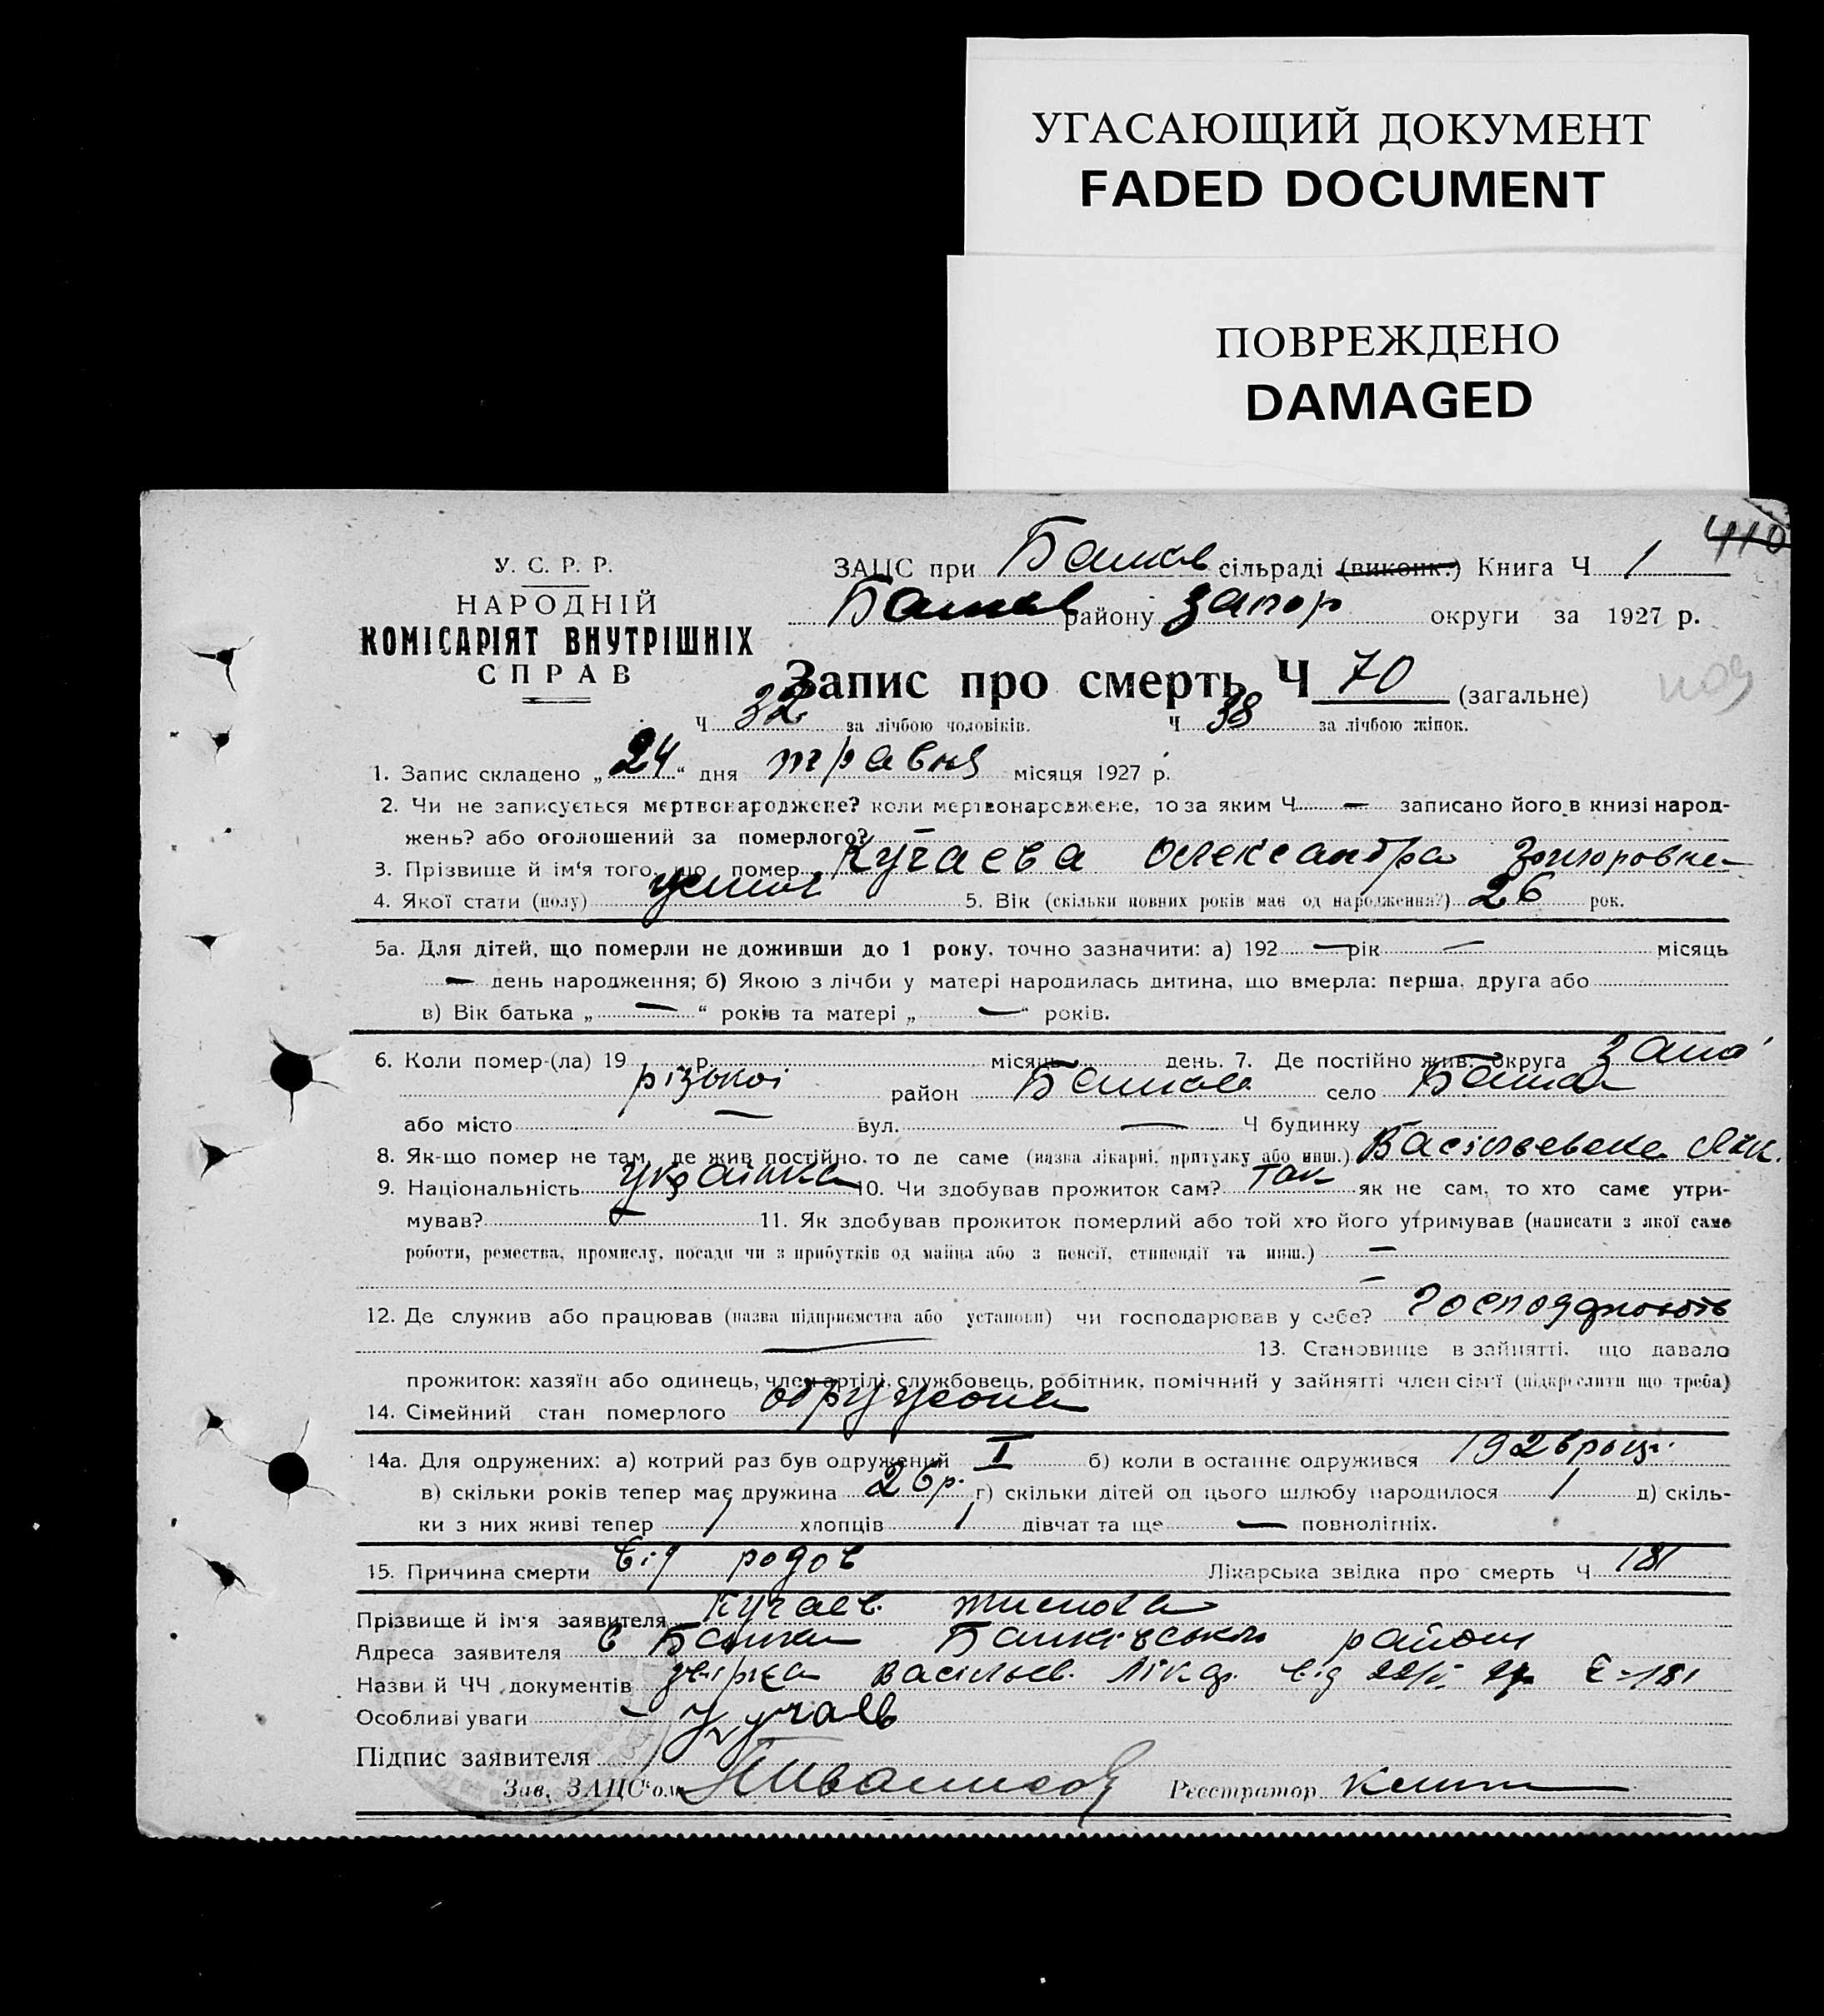 УГАСАЮЩИЙ ДОКУМЕНТ
FADED DOCUMENT
ПОВРЕЖДЕНО
DAMAGED
410
У. С. Р. Р.
НАРОДНІЙ
КОМІСАРІЯТ ВНУТРІШНІХ
СПРАВ
ЗАЦС при сільраді (виконк.) Книга Ч 1
району Запор округи за 1927 р.
Запис про смерть Ч 70 (загальне)
Ч 32 за лічбою чоловіків. Ч 38 за лічбою жінок.
1. Запис складено „24“ дня травня місяця 1927 р.
2. Чи не записується мертвонароджене? коли мертвонароджене, то за яким Ч — записано його в книзі народ-
жень? або оголошений за померлого? —
3. Прізвище й ім‘я того, що помер Кучаева Олександра
4. Якої стати (полу) 5. Вік (скільки повних років має од народження?) 26 рок.
5а. Для дітей, що померли не доживши до 1 року, точно зазначити: а) 192 — рік — місяць
— день народження; б) Якою з лічби у матері народилась дитина, що вмерла: перша, друга або
в) Вік батька „ — “ років та матері „ — “ років.
6. Коли помер-(ла) 19 р. місяць день. 7. Де постійно жив: округа Запо
різької район село
або місто — вул. — Ч будинку
8. Як-що помер не там, де жив постійно, то де саме (назва лікарні, притулку або инш.)
9. Національність Українка 10. Чи здобував прожиток сам? Так як не сам, то хто саме утри-
мував? — 11. Як здобував прожиток померлий або той хто його утримував (написати з якої саме
роботи, ремества, промислу, посади чи з прибутків од майна або з пенсії, стипендії та инш.) —
—
12. Де служив або працював (назва підприємства або установи) чи господарював у себе?
— 13. Становище в зайнятті, що давало
прожиток: хазяїн або одинець, член артілі, службовець, робітник, помічний у зайнятті член сім‘ї (підкреслити що треба)
14. Сімейний стан померлого одружона
14а. Для одружених: а) котрий раз був одружений I б) коли в останнє одружився
в) скільки років тепер має дружина 26 р. г) скільки дітей од цього шлюбу народилося 1 д) скіль-
ки з них живі тепер хлопців 1 дівчат та ще — повнолітніх.
15. Причина смерти Від родов Лікарська звідка про смерть Ч 181
Прізвище й ім‘я заявителя Кучаев
Адреса заявителя району
Назви й ЧЧ документів від 181
Особливі уваги —
Підпис заявителя
Зав. ЗАЦС‘ом Реєстратор